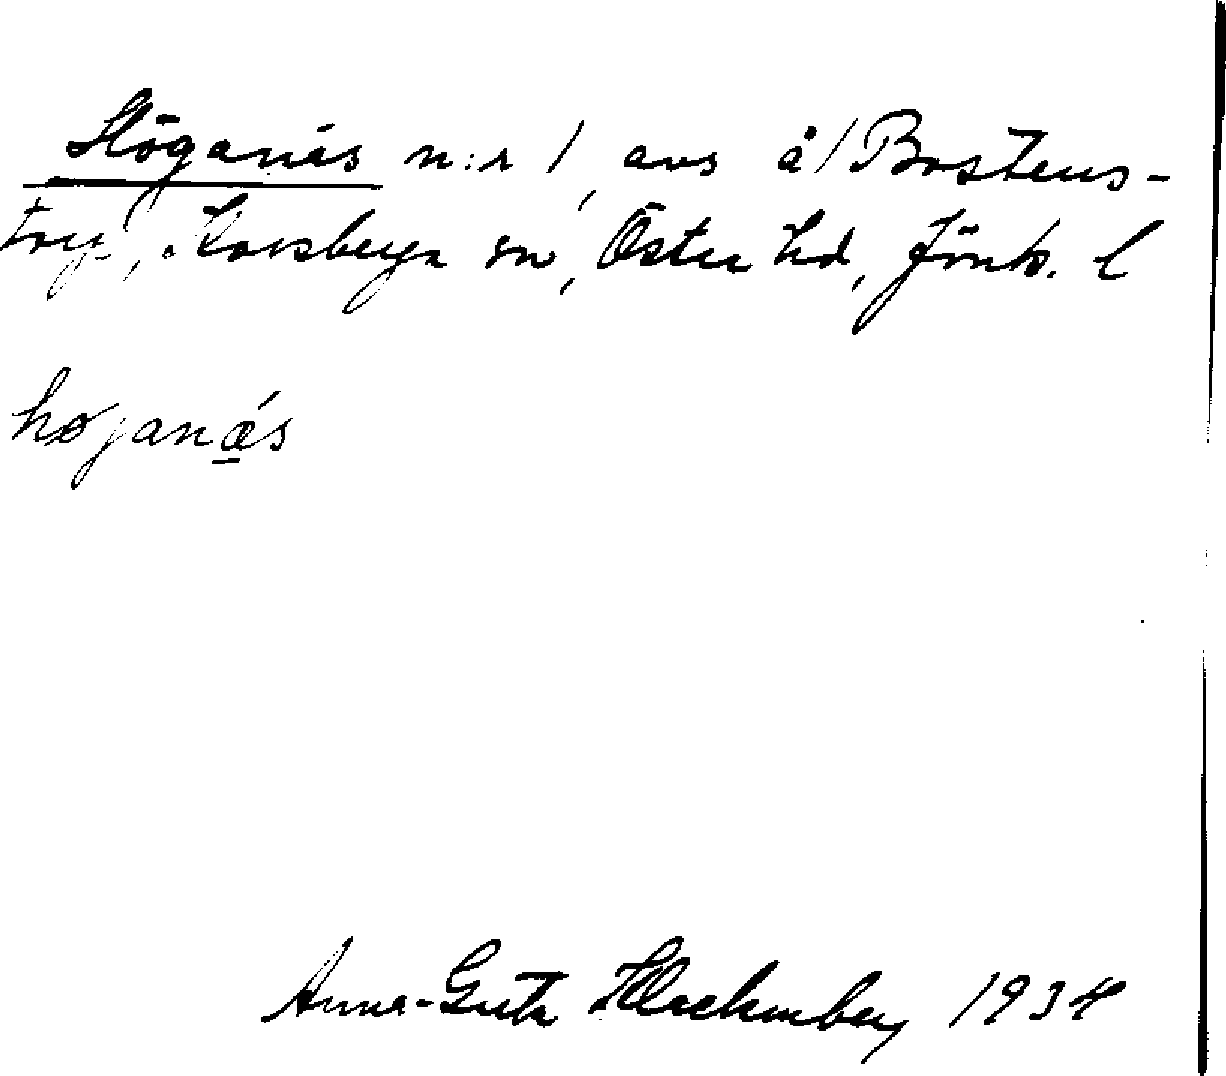 Höganäs n:r 1, avs å/Bostens-
torp, Korsberga sn, Östra hd, Jönk. l
højanǽs
Anna-Greta Hlackenberg 1934